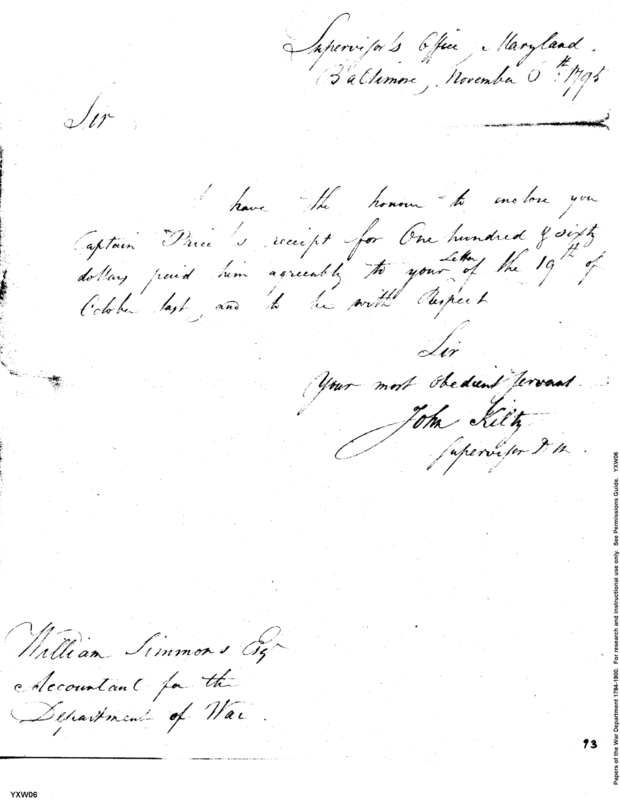 Supervisor's Office, Maryland.
Baltimore, November 6th. 1795
Sir
I have the honour to enclose you
Captain Price's receipt for One hundred & sixty
dollars paid him agreeably to your Letter of the 19th of
October last, and to be with Respect
Sir
Your most obedient servant
John Kilty
Supervisor
William Simmons Esqr
Accountant for the
Department of War.
93
YXW06
Papers of the War Department 1784-1800. For research and instructional use only. See Permissions Guide. YXW06